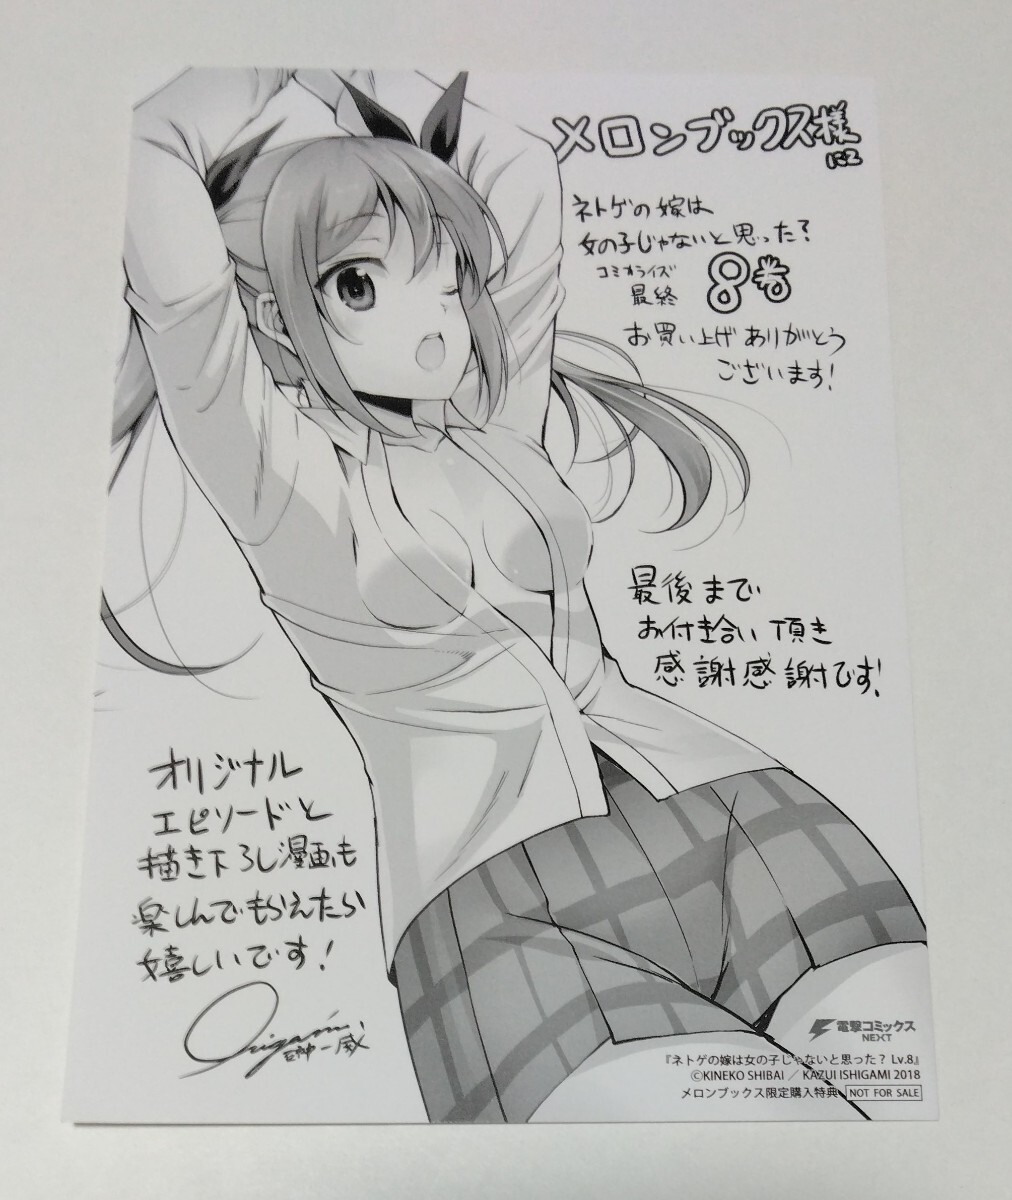 メロンブックス様
にて
ネトゲの嫁は
女の子じゃないと思った?
コミカライズ
最終 8巻
お買い上げありがとう
ございます!
最後まで
お付き合い頂き
感謝感謝です!
オリジナル
エピソードと
描き下ろし漫画も
楽しんでもらえたら
嬉しいです!
電撃コミックス
NEXT
『ネトゲの嫁は女の子じゃないと思った? Lv.8』
©KINEKO SHIBAI/KAZUI ISHIGAMI 2018
メロンブックス限定購入特典 NOT FOR SALE